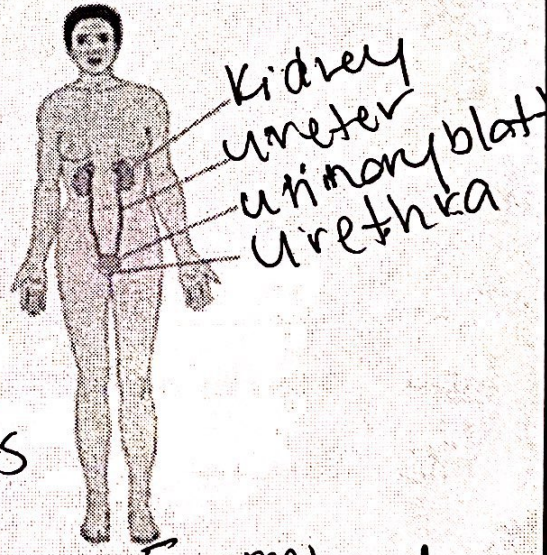 Kidney
Ureter
Urinary blatt
Urethra
S